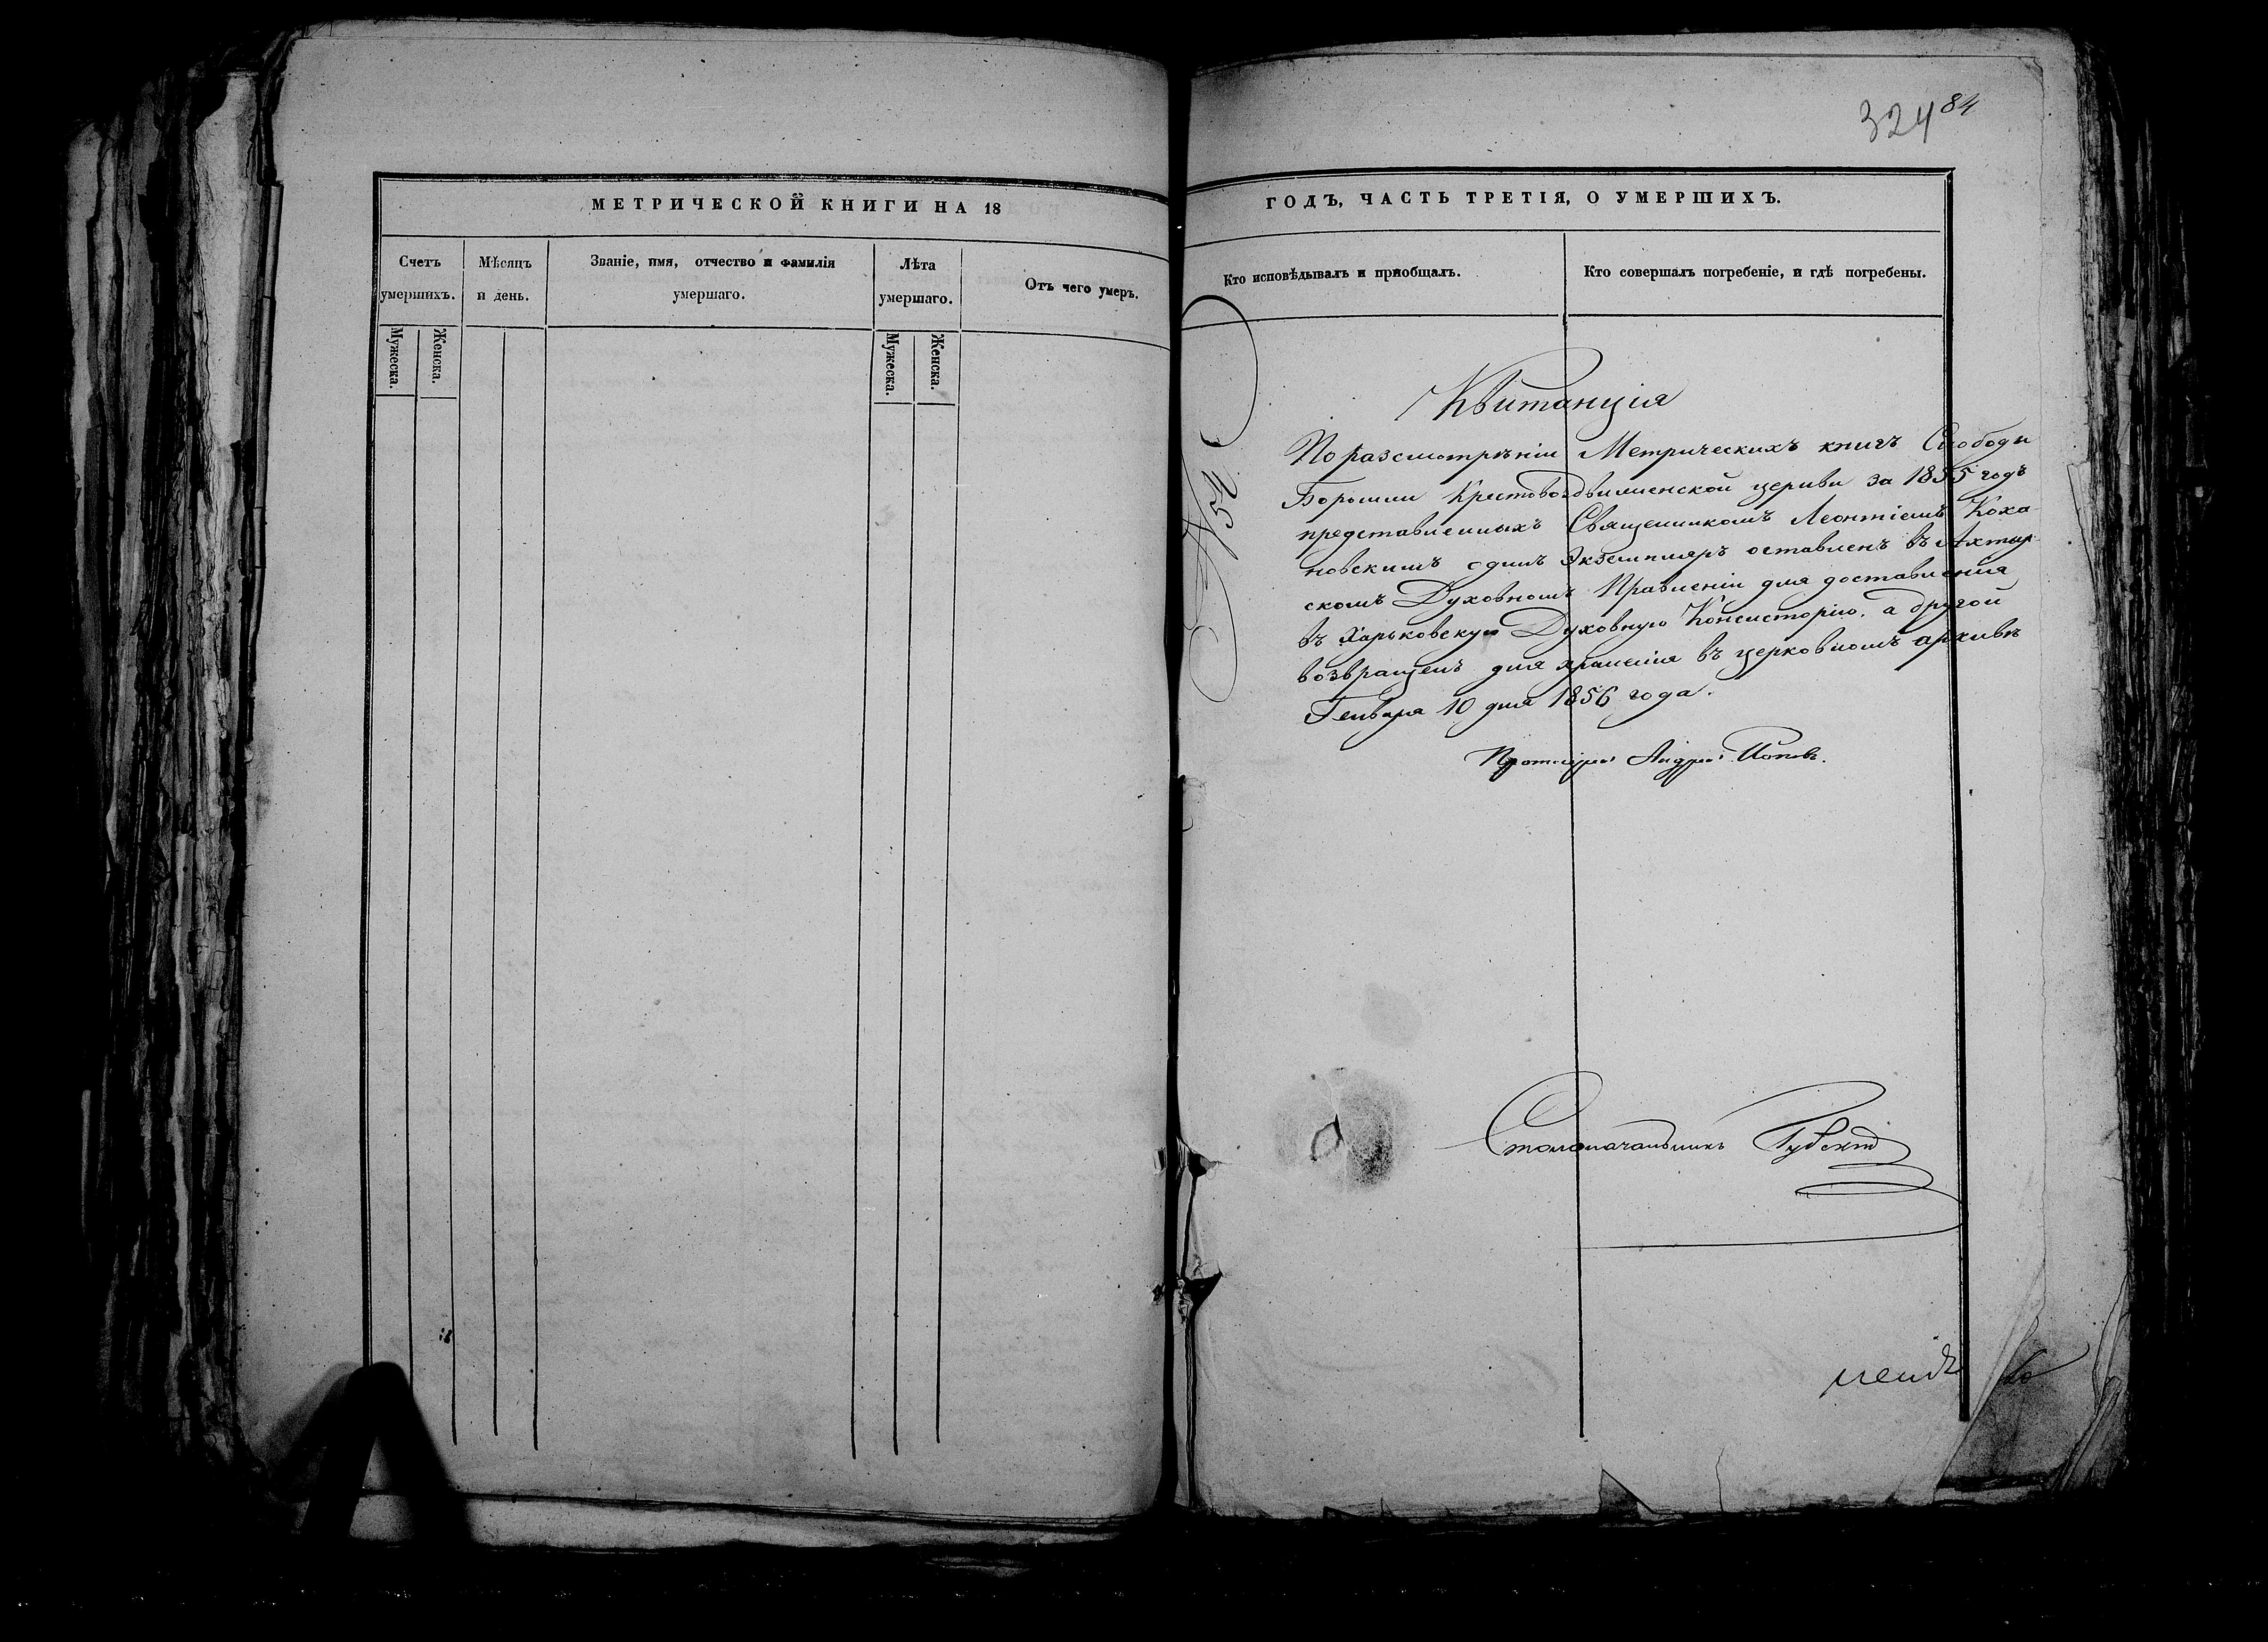 324 84
МЕТРИЧЕСКОЙ КНИГИ НА 18
ГОДЪ, ЧАСТЬ ТРЕТІЯ, О УМЕРШИХЪ.
Счетъ умершихъ.
Мужеска.
Женска.
Мѣсяцъ и день.
Званіе, имя, отчество и фамилія умершаго.
Лѣта умершаго.
Мужеска.
Женска.
Отъ чего умеръ.
Кто исповѣдывалъ и пріобщалъ.
Кто совершалъ погребеніе, и гдѣ погребены.
№ 54
Квитанція
По разсмотрѣніи Метрическихъ книгъ Слободы
Боромли Крестовоздвиженской церкви за 1855 годъ
представленныхъ Священникомъ Леонтіемъ Коха-
новскимъ одинъ Экземпляръ оставленъ въ Ахтыр-
скомъ Духовномъ Правленіи для доставленія
въ Харьковскую Духовную Консисторію, а другой
возвращенъ для храненія въ церковномъ архивѣ
Генваря 10 дня 1856 года.
Протоіерей Андрей Поповъ.
Столоначальникъ